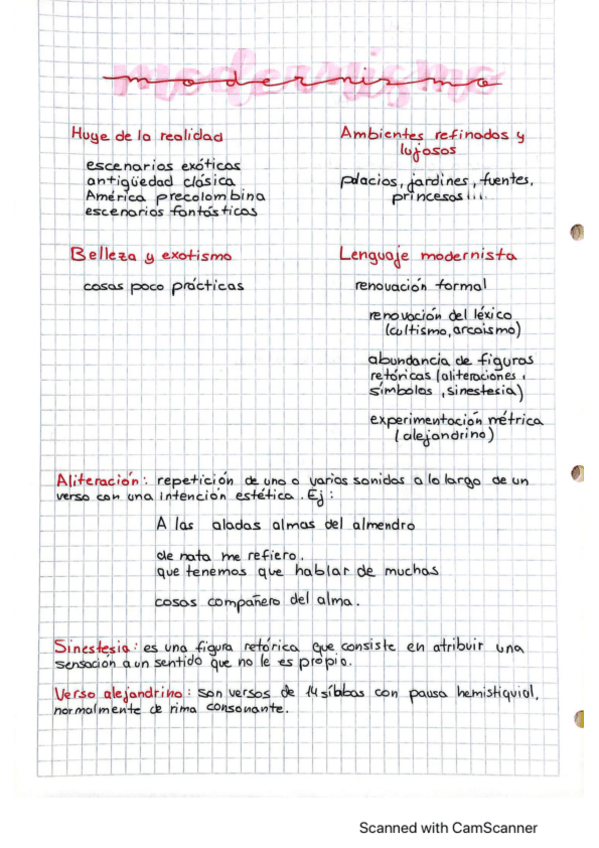 modernismo
Huye de la realidad
escenarios exóticos
antigüedad clásica
América precolombina
escenarios fantásticos
Ambientes refinados y
lujosos
palacios, jardines, fuentes,
princesas...
Belleza y exotismo
cosas poco prácticas
Lenguaje modernista
renovación formal
renovación del léxico
(cultismo, arcaismo)
abundancia de figuras
retóricas (aliteraciones,
símbolos, sinestesia)
experimentación métrica
(alejandrino)
Aliteración: repetición de uno o varios sonidos a lo largo de un
verso con una intención estética. Ej:
A las aladas almas del almendro
de nata me refiero.
que tenemos que hablar de muchas
cosas compañero del alma.
Sinestesia: es una figura retórica que consiste en atribuir una
sensación a un sentido que no le es propio.
Verso alejandrino: son versos de 14 síbbas con pausa hemistiquial,
normalmente de rima consonante.
Scanned with CamScanner